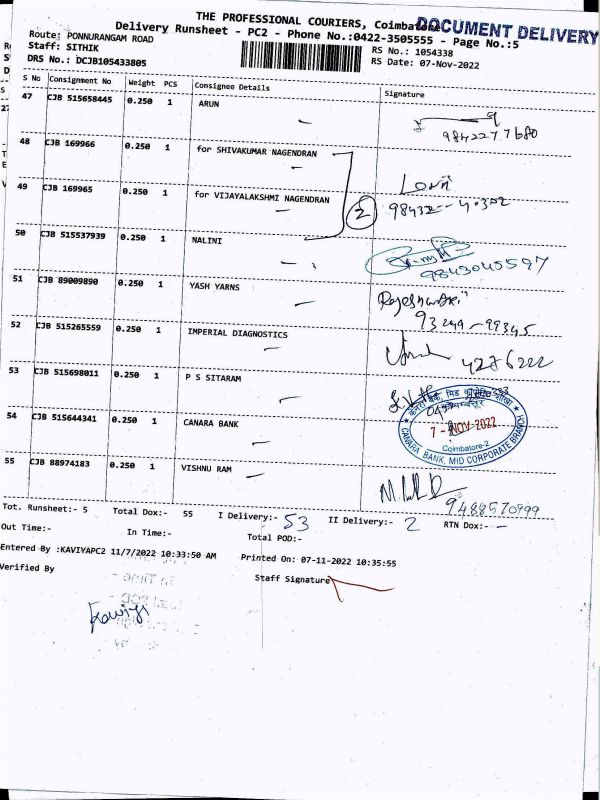 THE PROFESSIONAL COURIERS, Coimbatore
DOCUMENT DELIVERY
Delivery Runsheet - PC2 - Phone No.:0422-3505555 - Page No.:5
Route: PONNURANGAM ROAD
RS No.: 1054338
Staff: SITHIK
RS Date: 07-Nov-2022
DRS No.: DCJB105433805
S No Consignment No Weight PCS Consignee Details Signature
47 CJB 515658445 0.250 1 ARUN
9842277680
48 CJB 169966 0.250 1 for SHIVAKUMAR NAGENDRAN
49 CJB 169965 0.250 1 for VIJAYALAKSHMI NAGENDRAN
2
50 CJB 515537939 0.250 1 NALINI
9843045597
51 CJB 89009890 0.250 1 YASH YARNS
Rajeshwari
93244-99345
52 CJB 515265559 0.250 1 IMPERIAL DIAGNOSTICS
4276222
53 CJB 515698011 0.250 1 P S SITARAM
54 CJB 515644341 0.250 1 CANARA BANK
7 - NOV 2022
Coimbatore-2
CANARA BANK, MID CORPORATE BRANCH
55 CJB 88974183 0.250 1 VISHNU RAM
9488570999
Tot. Runsheet:- 5 Total Dox:- 55 I Delivery:- 53 II Delivery:- 2 RTN Dox:- -
Out Time:- In Time:- Total POD:-
Entered By :KAVIYAPC2 11/7/2022 10:33:50 AM Printed On: 07-11-2022 10:35:55
Verified By Staff Signature
Kaviya